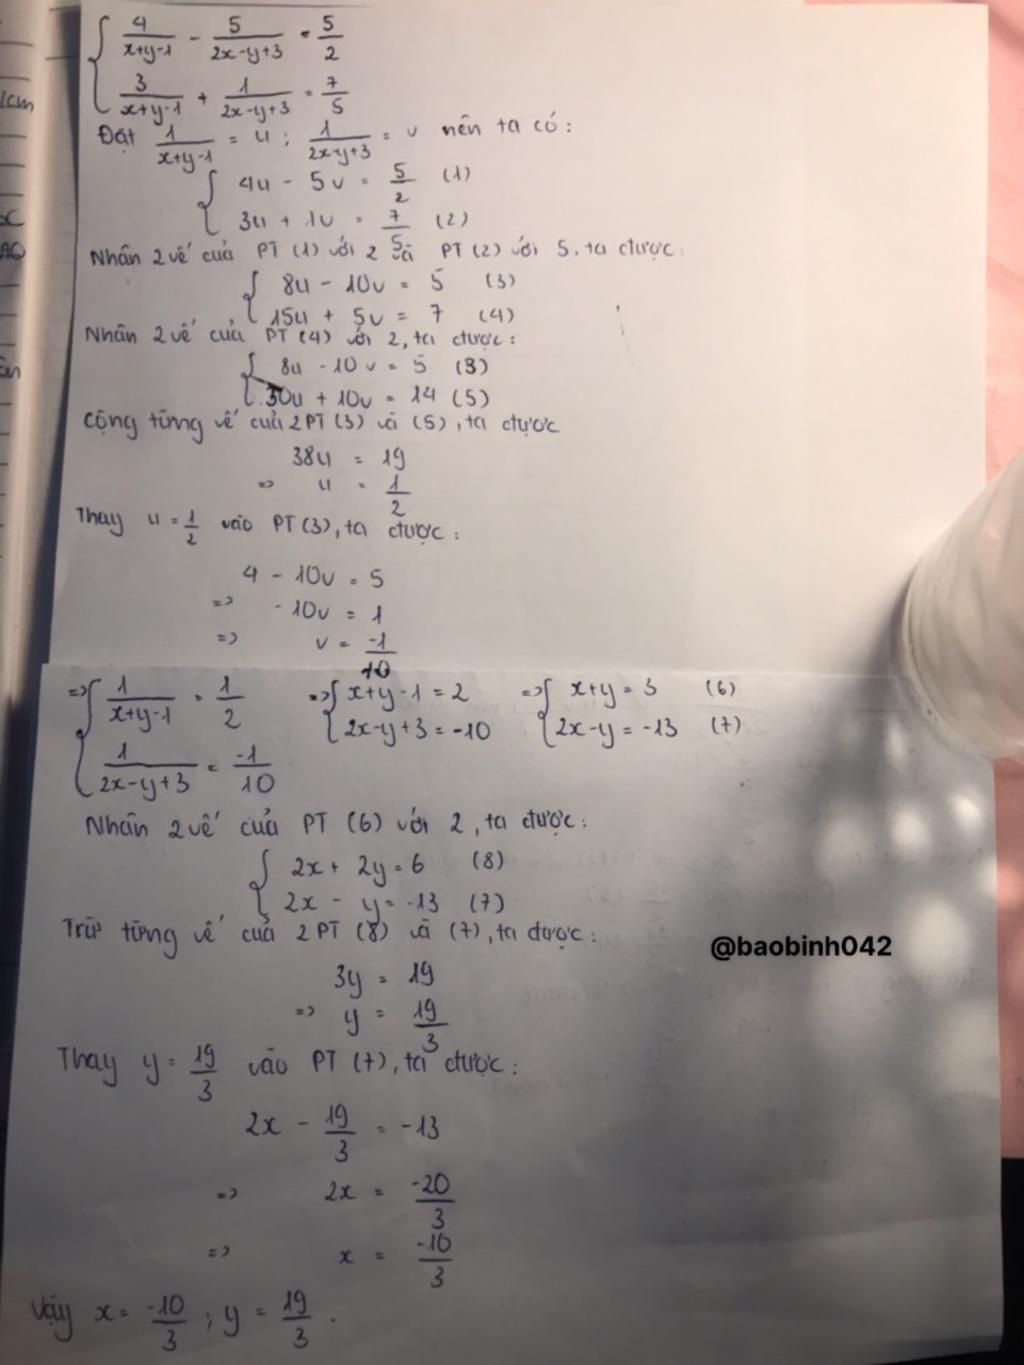 { 4/(x+y-1) - 5/(2x-y+3) = 5/2
{ 3/(x+y-1) + 1/(2x-y+3) = 7/5
Đặt 1/(x+y-1) = u ; 1/(2x-y+3) = v nên ta có :
{ 4u - 5v = 5/2 (1)
{ 3u + 1v = 7/5 (2)
Nhân 2 vế của PT (1) với 2 và PT (2) với 5, ta được :
{ 8u - 10v = 5 (3)
{ 15u + 5v = 7 (4)
Nhân 2 vế của PT (4) với 2, ta được :
{ 8u - 10v = 5 (3)
{ 30u + 10v = 14 (5)
Cộng từng vế của 2 PT (3) và (5), ta được
38u = 19
=> u = 1/2
Thay u = 1/2 vào PT (3), ta được :
4 - 10v = 5
=> -10v = 1
=> v = -1/10
=> { 1/(x+y-1) = 1/2 => { x+y-1 = 2 => { x+y = 3 (6)
{ 1/(2x-y+3) = -1/10 { 2x-y+3 = -10 { 2x-y = -13 (7)
Nhân 2 vế của PT (6) với 2, ta được :
{ 2x + 2y = 6 (8)
{ 2x - y = -13 (7)
Trừ từng vế của 2 PT (8) và (7), ta được :
@baobinh042
3y = 19
=> y = 19/3
Thay y = 19/3 vào PT (7), ta được :
2x - 19/3 = -13
=> 2x = -20/3
=> x = -10/3
Vậy x = -10/3 ; y = 19/3 .